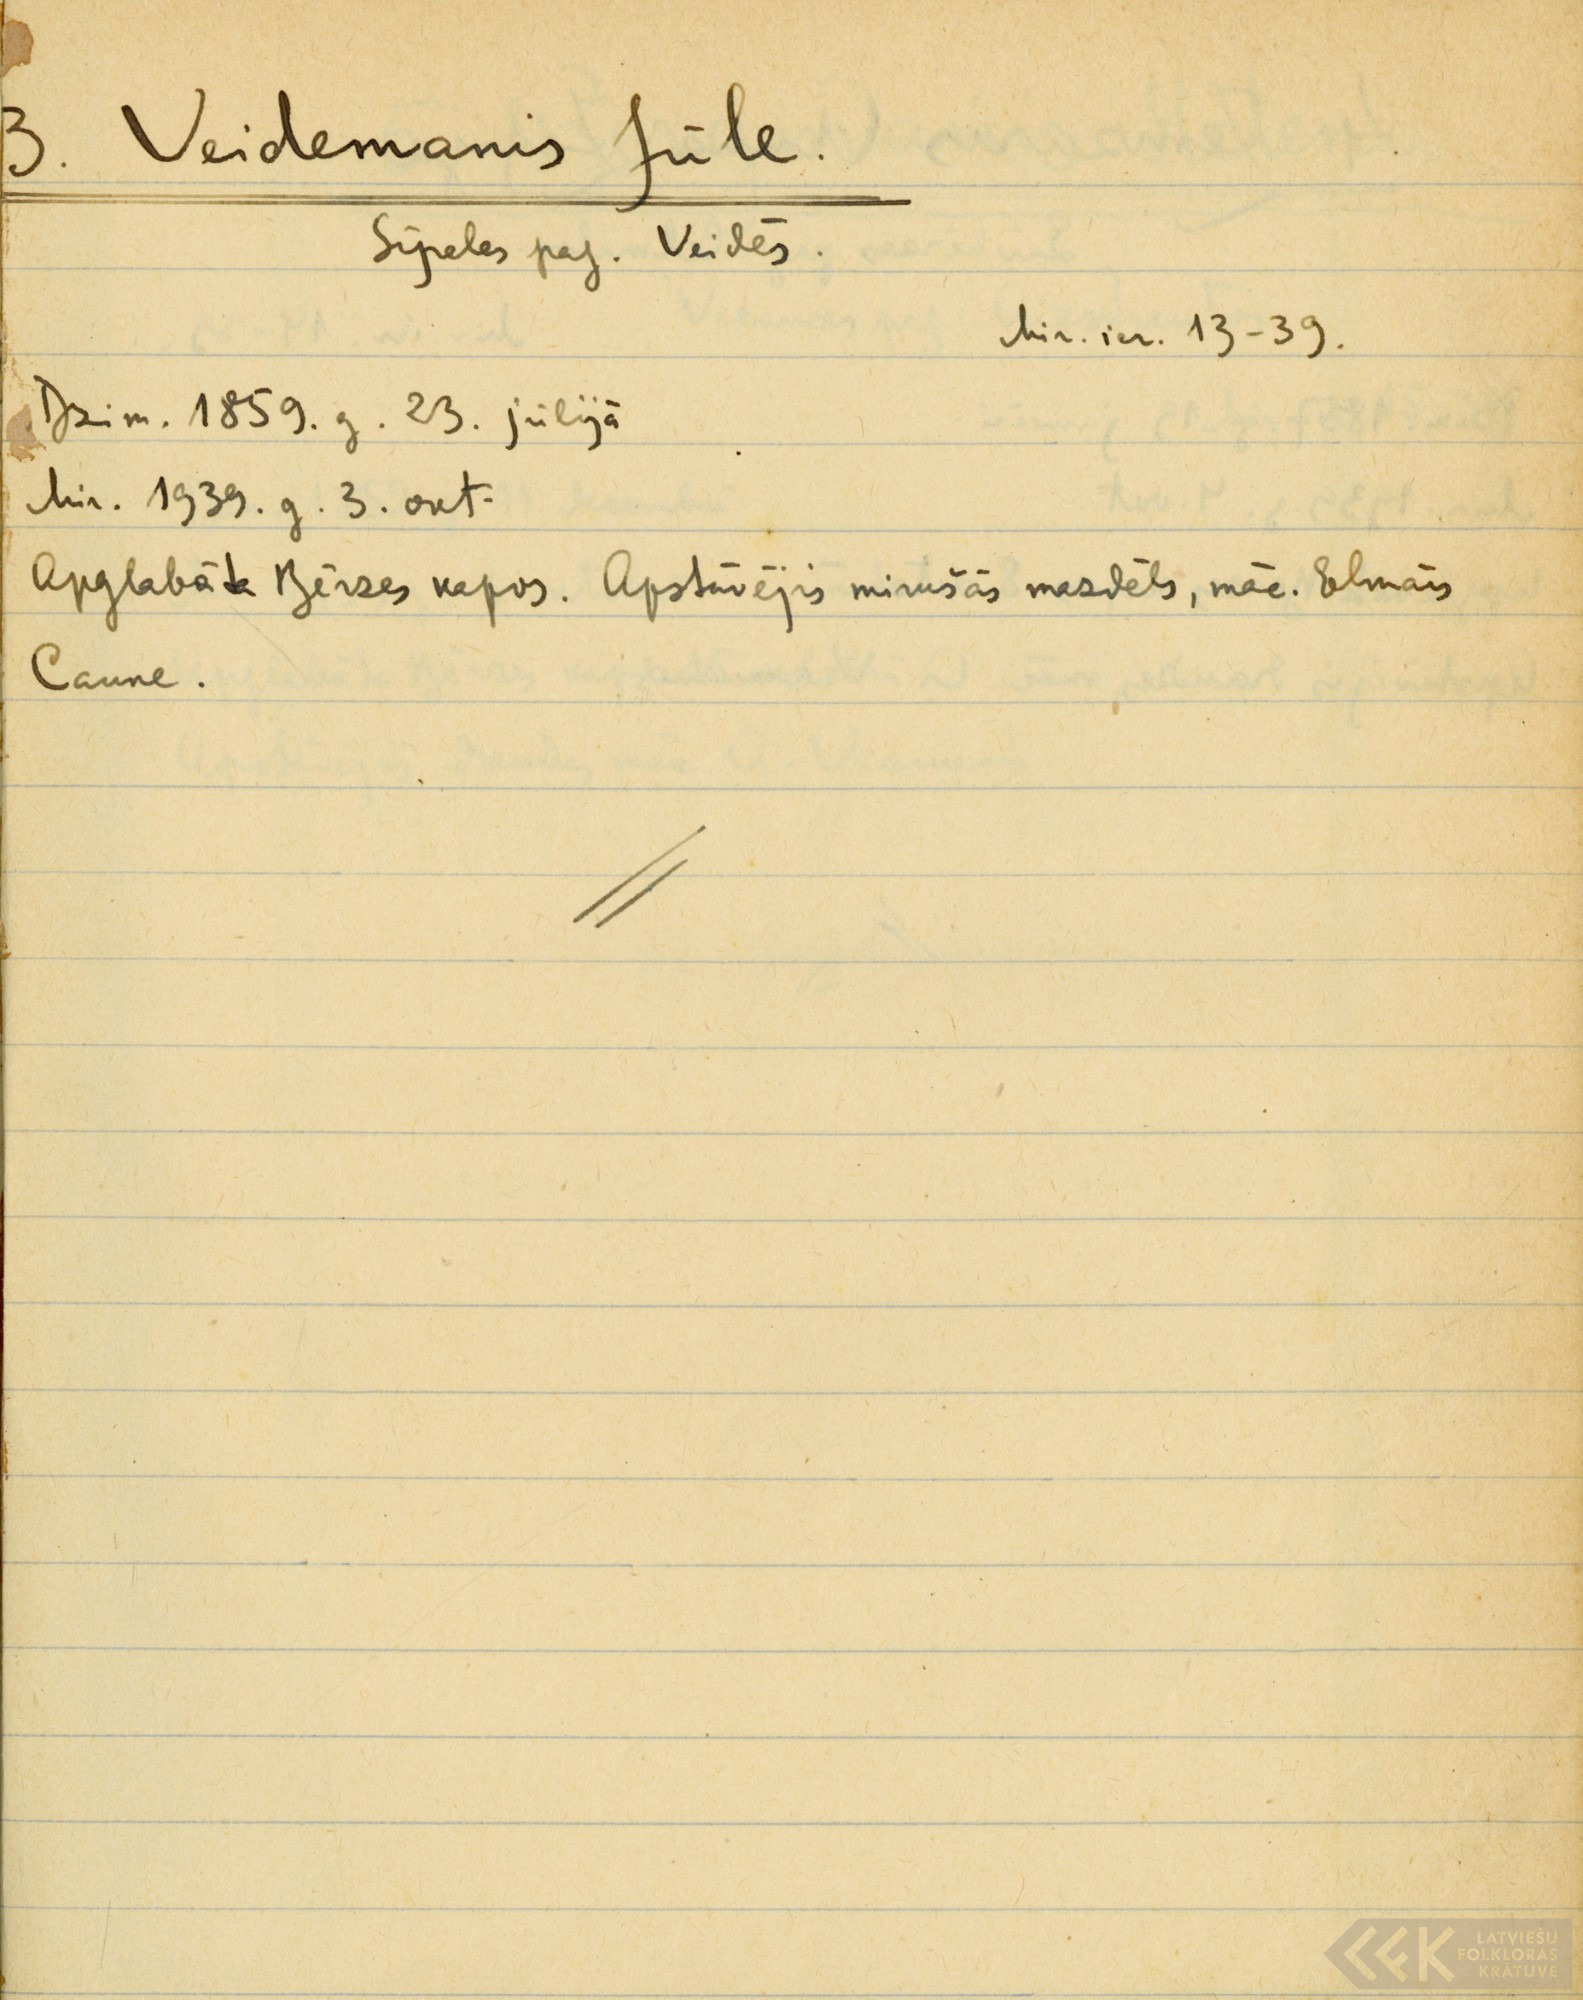 3. Veidemanis Jūle.
Sīpeles pag. Veidēs.
Mir. ier. 13-39.
Dzim. 1859. g. 23. jūlijā
Mir. 1939. g. 3. okt.
Apglabāta Bērzes kapos. Apstāvējis mirušās mazdēls, māc. Elmārs
Caune.
LATVIEŠU
FOLKLORAS
KRĀTUVE